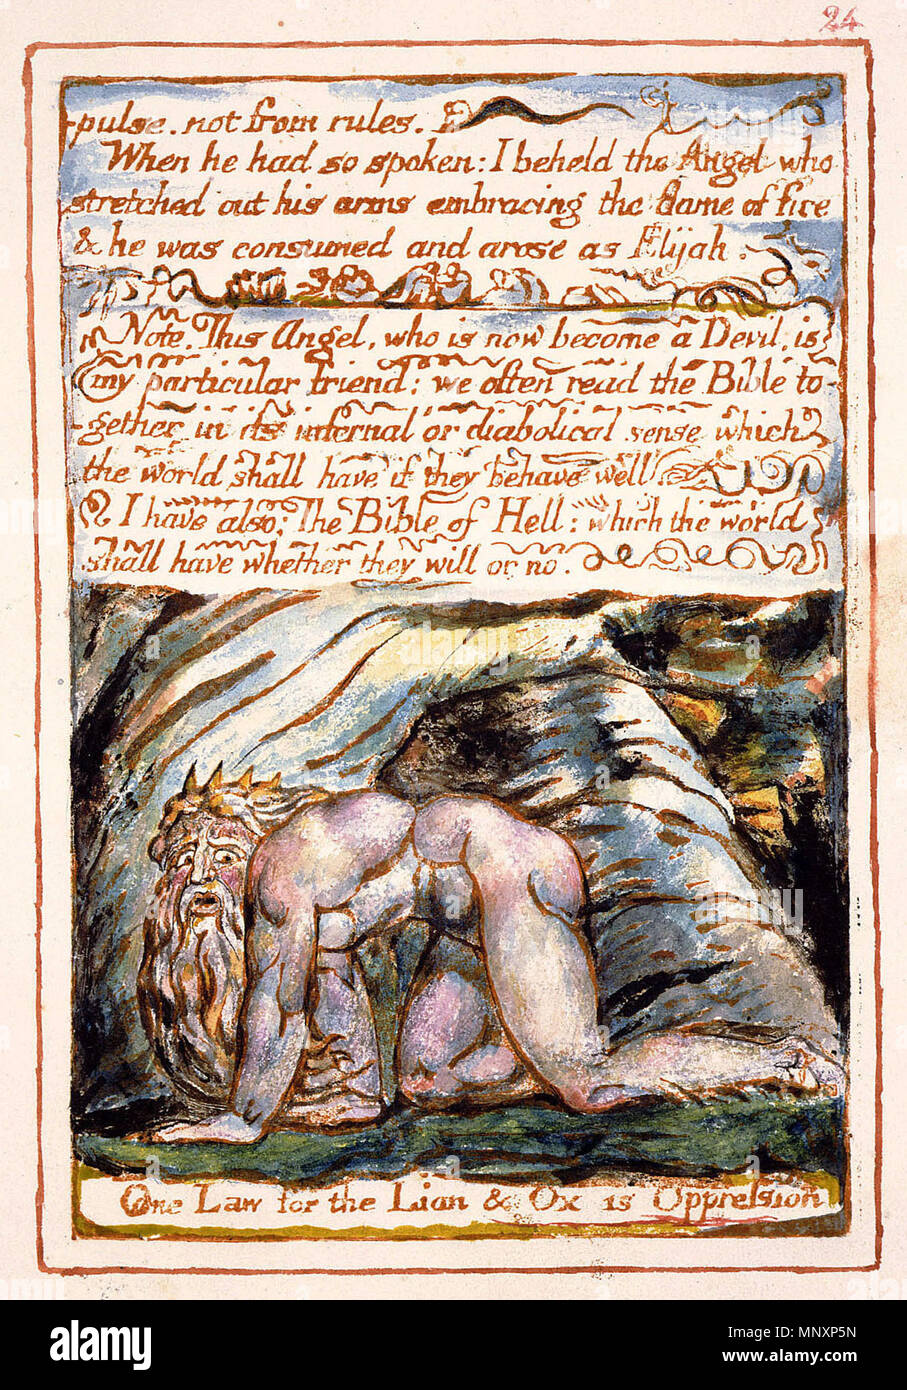 24
pulse. not from rules.
When he had so spoken: I beheld the Angel who
stretched out his arms embracing the flame of fire
& he was consumed and arose as Elijah.
Note. This Angel, who is now become a Devil, is
my particular friend: we often read the Bible to-
gether in its infernal or diabolical sense which
the world shall have if they behave well
I have also: The Bible of Hell: which the world
shall have whether they will or no.
One Law for the Lion & Ox is Oppression
alamy
Image ID: MNXP5N
www.alamy.com